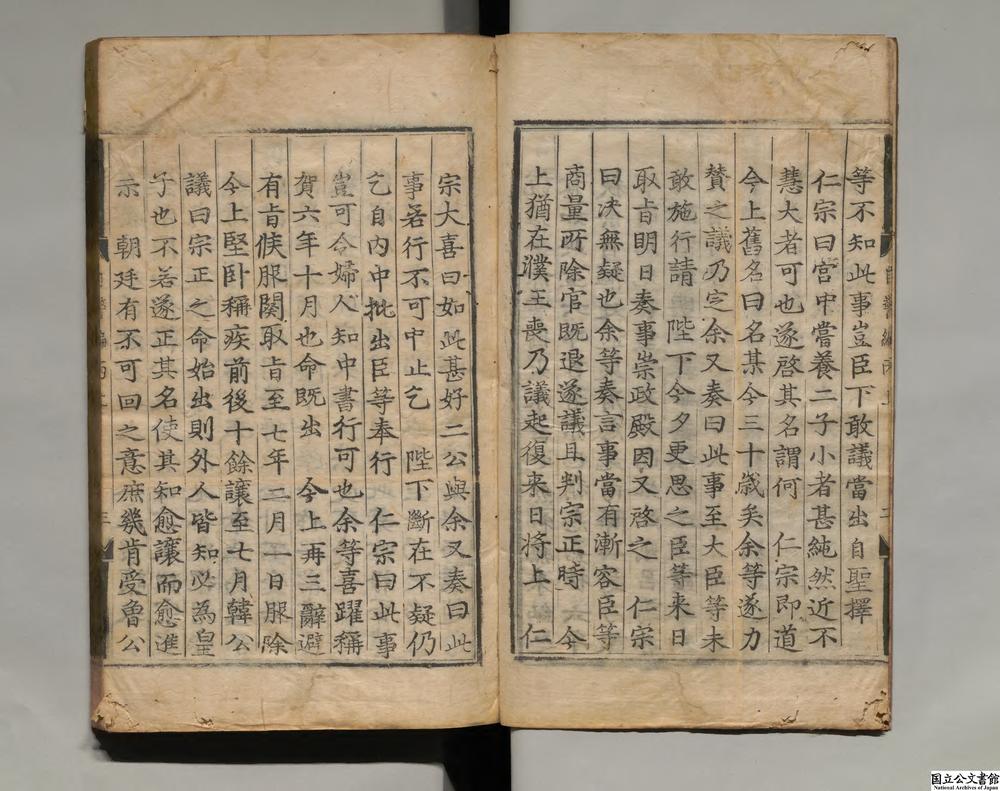 等不知此事豈臣下敢議當出自聖擇
仁宗曰宫中嘗養二子小者甚純然近不
慧大者可也遂啓其名謂何　仁宗即道
今上舊名曰名某今三十歳矣余等遂力
賛之議乃定余又奏曰此事至大臣等未
敢施行請　陛下今夕更思之臣等来日
取㫖明日奏事崇政殿因又啓之　仁宗
曰决無疑也余等奏言事當有漸容臣等
商量所除官既退遂議且判宗正時　今
上猶在濮王喪乃議起復来日將上　仁
宗大喜曰如此甚好二公與余又奏曰此
事若行不可中止乞　陛下斷在不疑仍
乞自内中批出臣等奉行　仁宗曰此事
豈可令婦人知中書行可也余等喜躍稱
賀六年十月也命既出　今上再三辭避
有㫖候服闋取㫖至七年二月一日服除
今上堅卧稱疾前後十餘讓至七月韓公
議曰宗正之命始出則外人皆知必為皇
子也不若遂正其名使其知愈讓而愈進
示　朝廷有不可回之意庶幾肯受魯公
国立公文書館
National Archives of Japan